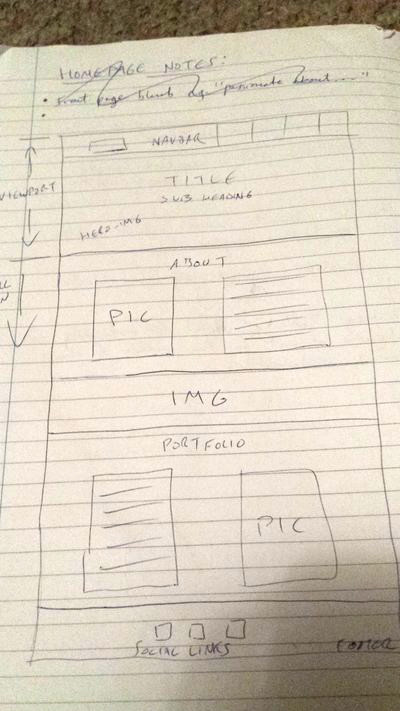 HOMEPAGE NOTES:
• Front page blurb eg. "passionate about...."
•
NAVBAR
VIEWPORT
TITLE
SUB HEADING
HERO-IMG
ABOUT
PIC
IMG
PORTFOLIO
PIC
SOCIAL LINKS
FOOTER